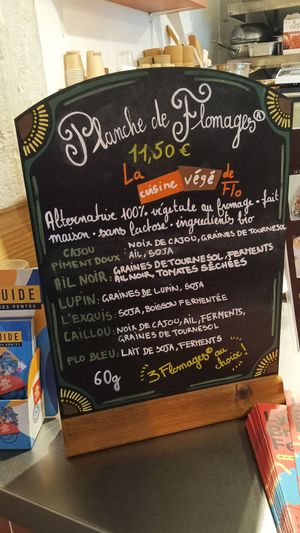 Planche de Flomages®
11,50 €
La cuisine végé de Flo
Alternative 100% végétale au fromage. fait
maison. sans lactose. ingrédients bio
CAJOU
PIMENT DOUX: NOIX DE CAJOU, GRAINES DE TOURNESOL
AIL, SOJA
AIL NOIR: GRAINES DE TOURNESOL, FERMENTS
AIL NOIR, TOMATES SÉCHÉES
LUPIN: GRAINES DE LUPIN, SOJA
L'EXQUIS: SOJA, BOISSON FERMENTÉE
CAILLOU: NOIX DE CAJOU, AIL, FERMENTS,
GRAINES DE TOURNESOL
FLO BLEU: LAIT DE SOJA, FERMENTS
60g
3 Flomages® au choix!
GUIDE
DES PENTES
GUIDE